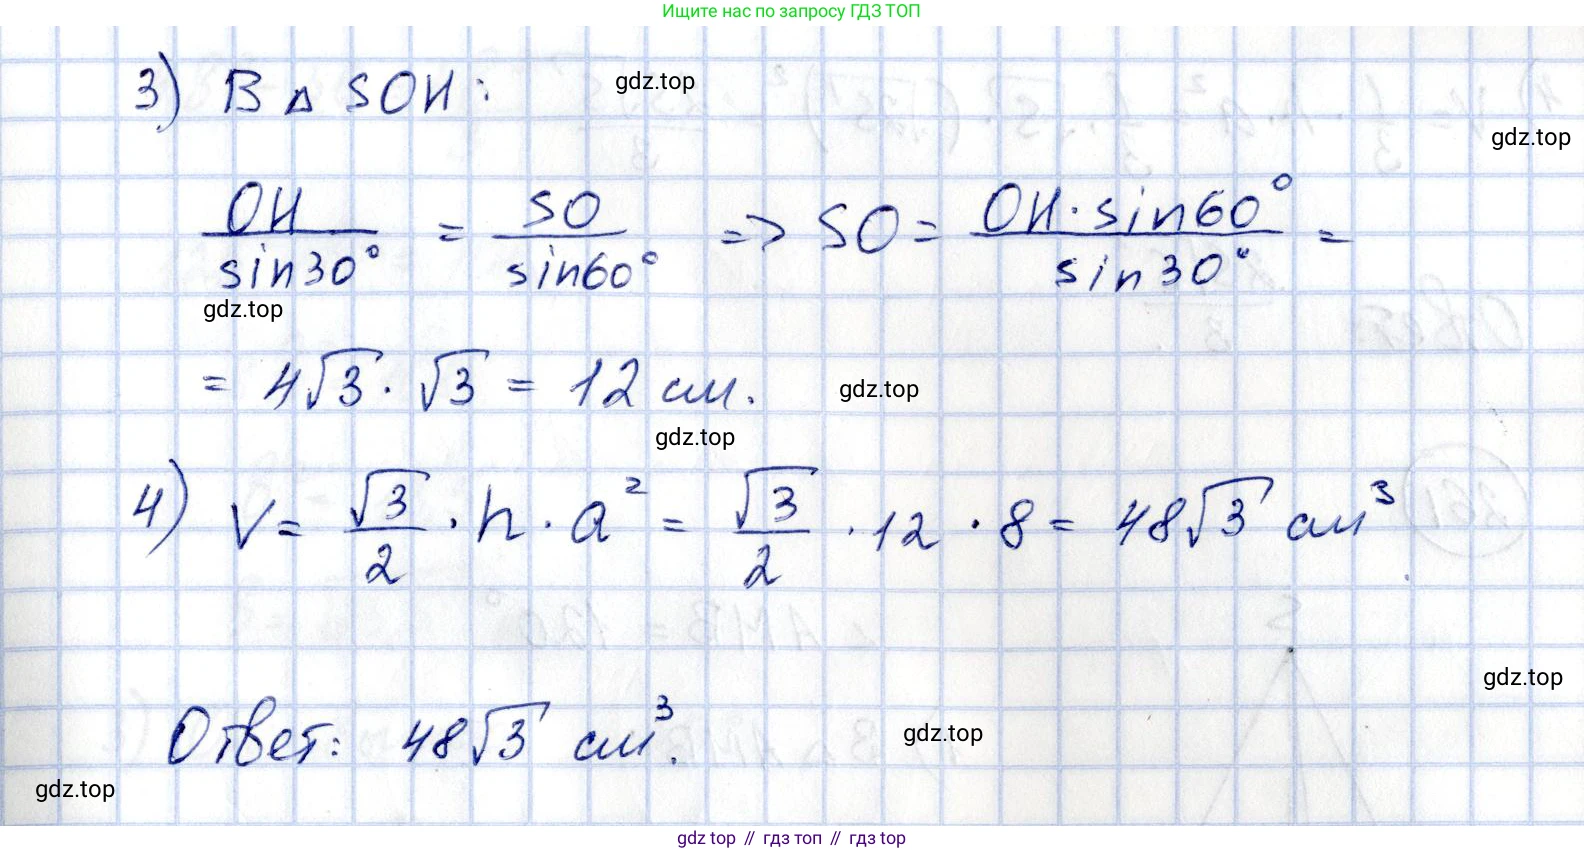 Ищите нас по запросу ГДЗ ТОП
3) В △ SOH:
gdz.top
gdz.top
OH/sin30° = SO/sin60° => SO = OH·sin60°/sin30° =
gdz.top
= 4√3 · √3 = 12 см.
gdz.top
gdz.top
4) V = √3/2 · h · a² = √3/2 · 12 · 8 = 48√3 см³
gdz.top
Ответ: 48√3 см³.
gdz.top
gdz.top
gdz top // гдз топ // гдз top